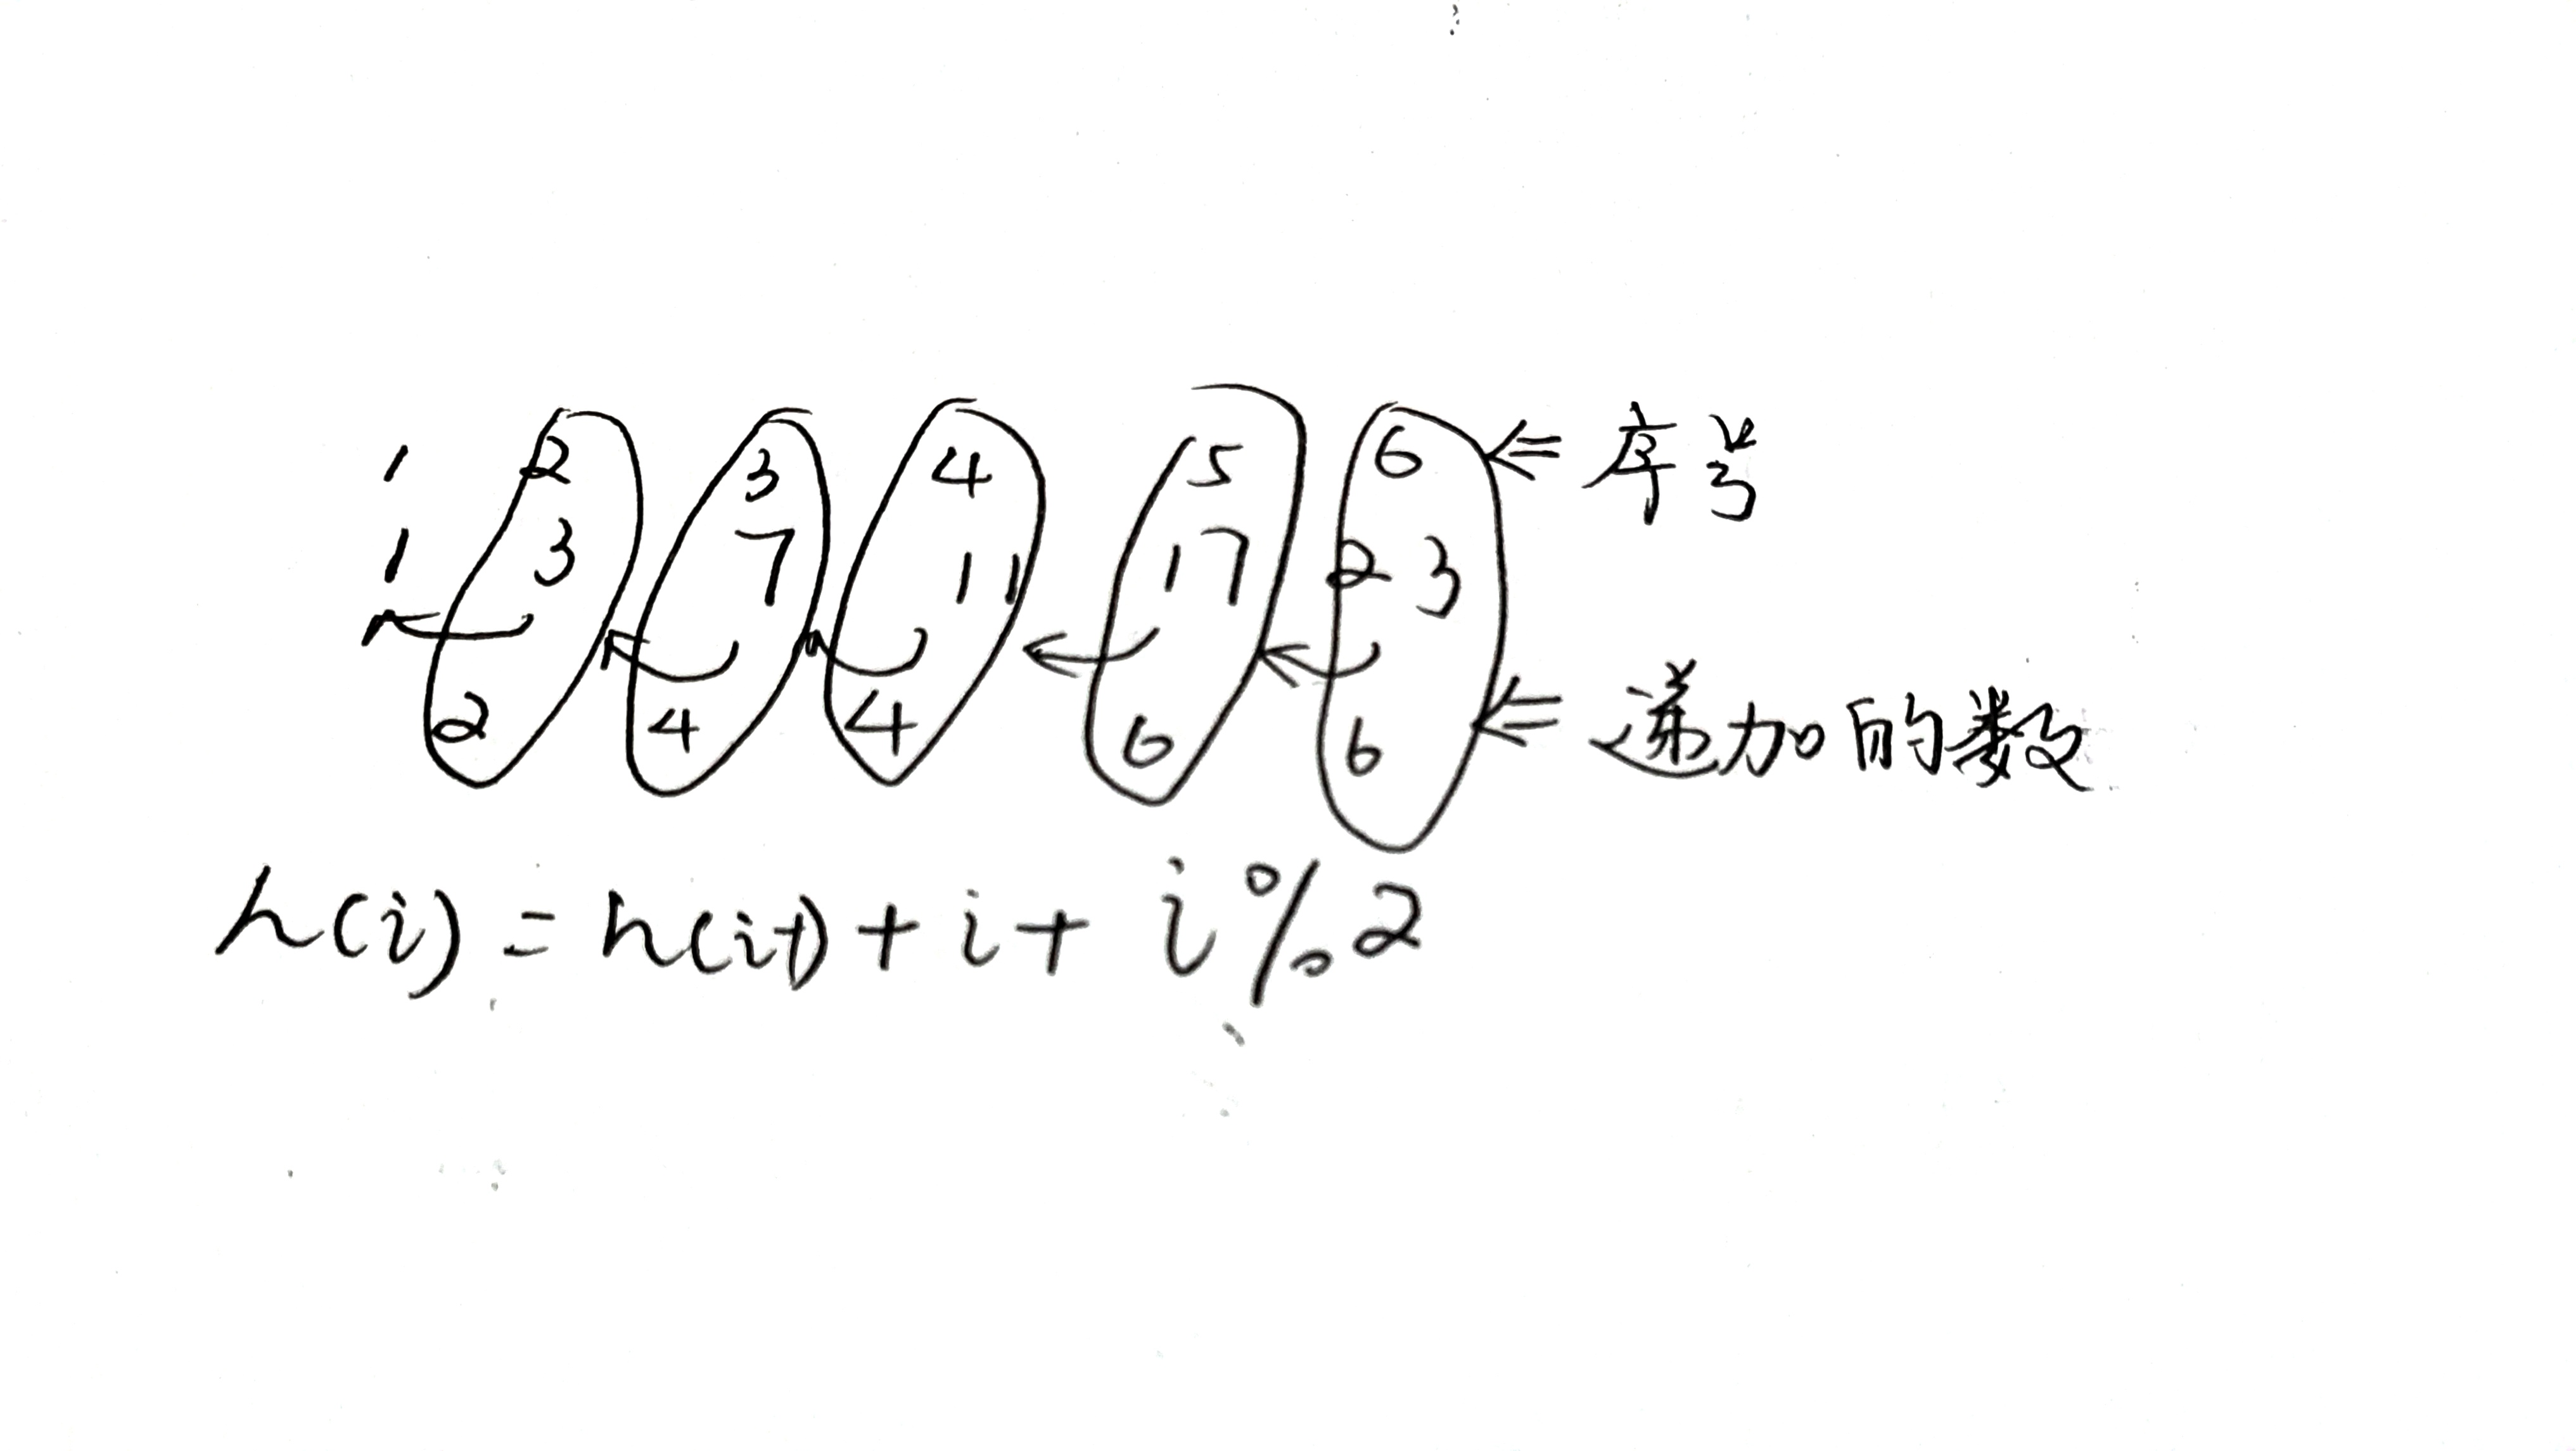 1 2 3 4 5 6 ⇐ 序号
1 3 7 11 17 23
2 4 4 6 6 ⇐ 递加的数
h(i) = h(i-1) + i + i%2